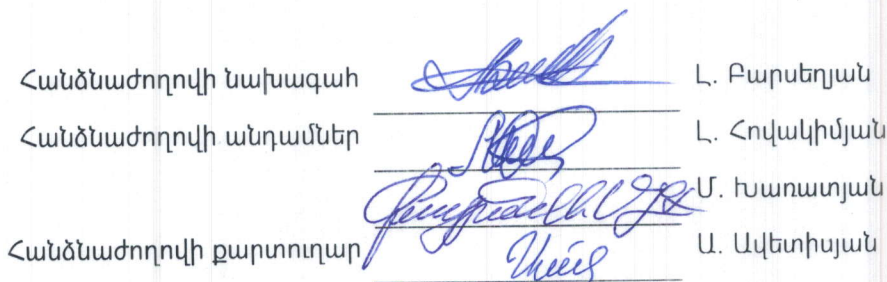 Հանձնաժողովի նախագահ Լ. Բարսեղյան
Հանձնաժողովի անդամներ Լ. Հովակիմյան
Մ. Խառատյան
Հանձնաժողովի քարտուղար Ա. Ավետիսյան